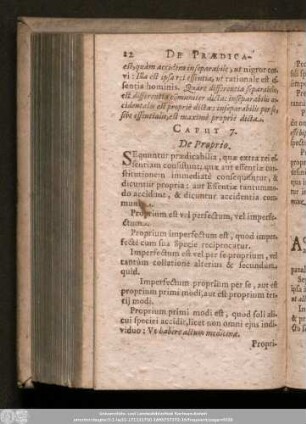 22 DE PRÆDICA-
est, quàm accidens inseparabile, ut nigrum cor-
vi: Illa est ipsa rei essentia, ut rationale est es-
sentia hominis. Quare differentia separabilis,
est differentia communiter dicta: inseparabilis ac-
cidentalis est propriè dicta: inseparabilis per se,
sive essentialis, est maximè propriè dicta.
CAPUT 7.
De Proprio.
SEquuntur prædicabilia, quæ extra rei es-
sentiam consistunt, quæ aut essentiæ con-
stitutionem immediatè consequuntur, &
dicuntur propria: aut Essentiæ tantummo-
do accidunt, & dicuntur accidentia com-
munia.
Proprium est vel perfectum, vel imperfe-
ctum.
Proprium imperfectum est, quod imper-
fectè cum sua Specie reciprocatur.
Imperfectum est vel per se proprium, vel
tantùm collatione alterius & secundùm
quid.
Imperfectum proprium per se, aut est
proprium primi modi, aut est proprium ter-
tij modi.
Proprium primi modi est, quod soli ali-
cui speciei accidit, licet non omni ejus indi-
viduo: Ut habere alium medicinæ.
Propri-